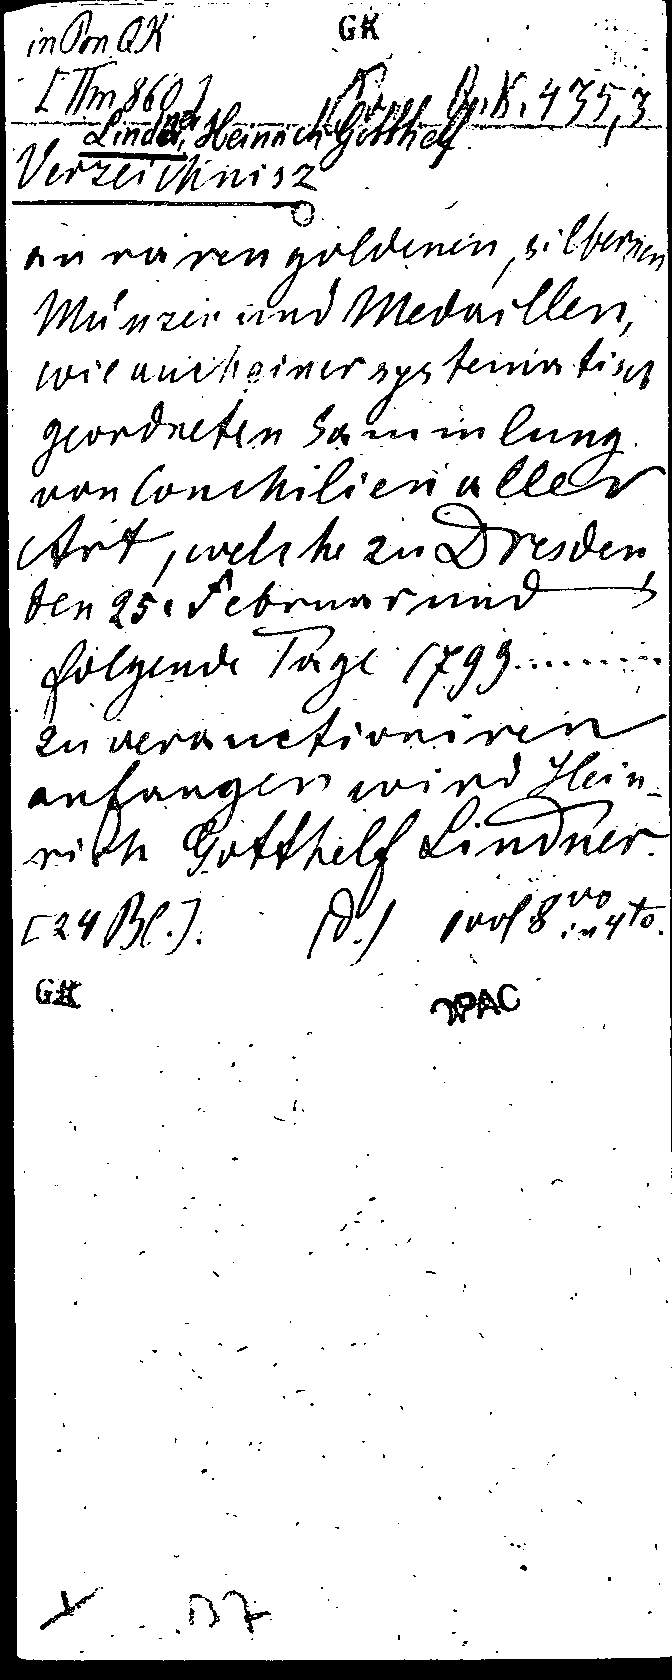 in Pon QK
GK
[IIm 860]
Qu.K. 435,3
Lindner, Heinrich Gotthelf
Verzeichnisz
an raren goldenen, silbernen
Münzen und Medaillen,
wie auch einer systematisch
geordneten Sammlung
von Conchilien aller
Art, welche zu Dresden
den 25. Februar und
folgende Tage 1799.........
zu verauctioniren
anfangen wird Hein-
rich Gotthelf Lindner.
[24 Bl.]. (D.) 8vo in 4to.
GK
OPAC
B7